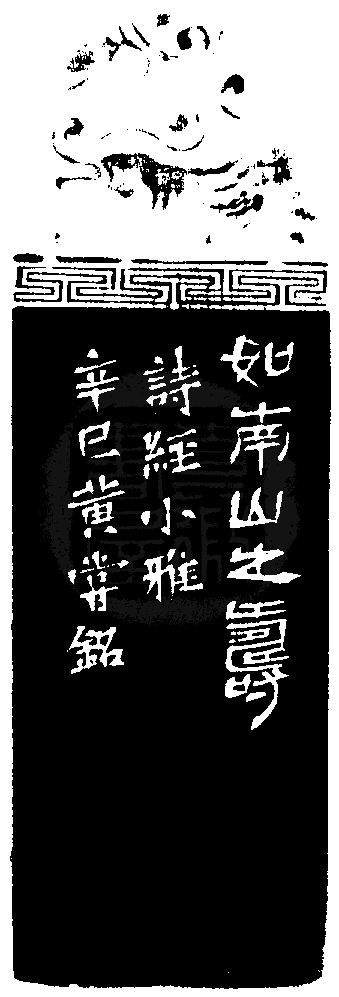 如南山之壽
詩經小雅
辛巳黃嘗銘